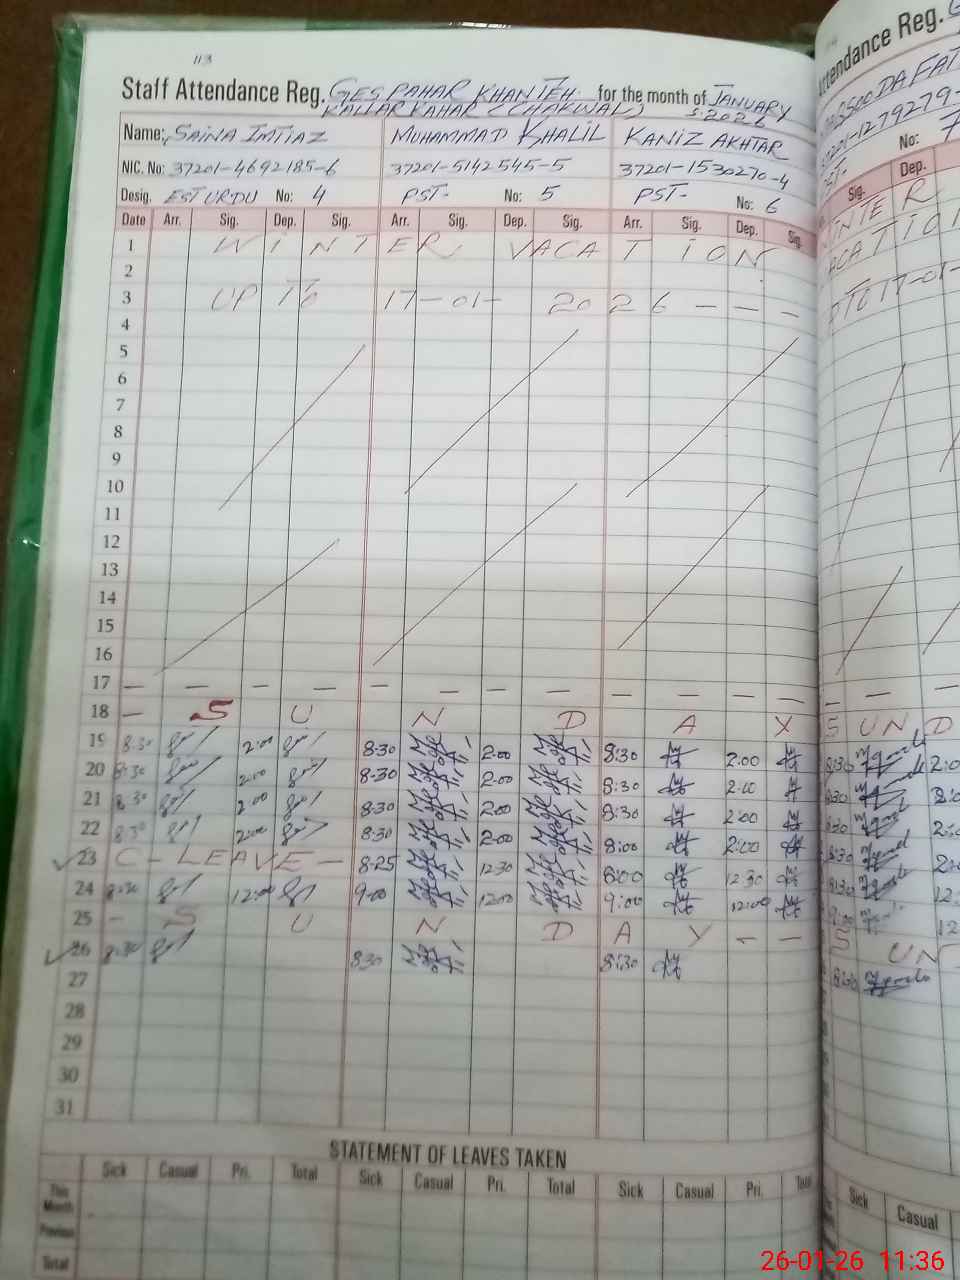 113
Staff Attendance Reg. GES PAHAR KHANTEH for the month of JANUARY
KALLAR KAHAR (CHAKWAL) S.2026
Name: SAINA IMTIAZ MUHAMMAD KHALIL KANIZ AKHTAR
NIC. No: 37201-4692185-6 37201-5142545-5 37201-1530270-4
Desig. EST URDU No: 4 PST- No: 5 PST- No: 6
Date Arr. Sig. Dep. Sig. Arr. Sig. Dep. Sig. Arr. Sig. Dep. Sig.
1 WINTER VACATION
2
3 UP TO 17-01-2026 - - -
4
5
6
7
8
9
10
11
12
13
14
15
16
17 — — — — — — — — — — — —
18 — S U N D A Y
19 8:30 2:00 8-30 2-00 8:30 2:00
20 8:30 2:00 8-30 2-00 8:30 2:00
21 8:30 2:00 8-30 2-00 8:30 2:00
22 8:30 2:00 8-30 2-00 8:00 2:00
23 C-LEAVE- 8-25 12-30 8:00 12:30
24 8:30 12:00 9-00 12-00 9:00 12:00
25 - S U N D A Y - -
26 8:30 8-30 8:30
27
28
29
30
31
STATEMENT OF LEAVES TAKEN
Sick Casual Pri. Total Sick Casual Pri. Total Sick Casual Pri. Total
This Month
Previous
Total
Attendance Reg.
No:
Sig. Dep.
WINTER
VACATION
UPTO 17-01-
S U N D
8:30 2:0
8:30
8:30
8:30
8:30 12:
9:00 12
S U N
8:30
Sick Casual
26-01-26 11:36